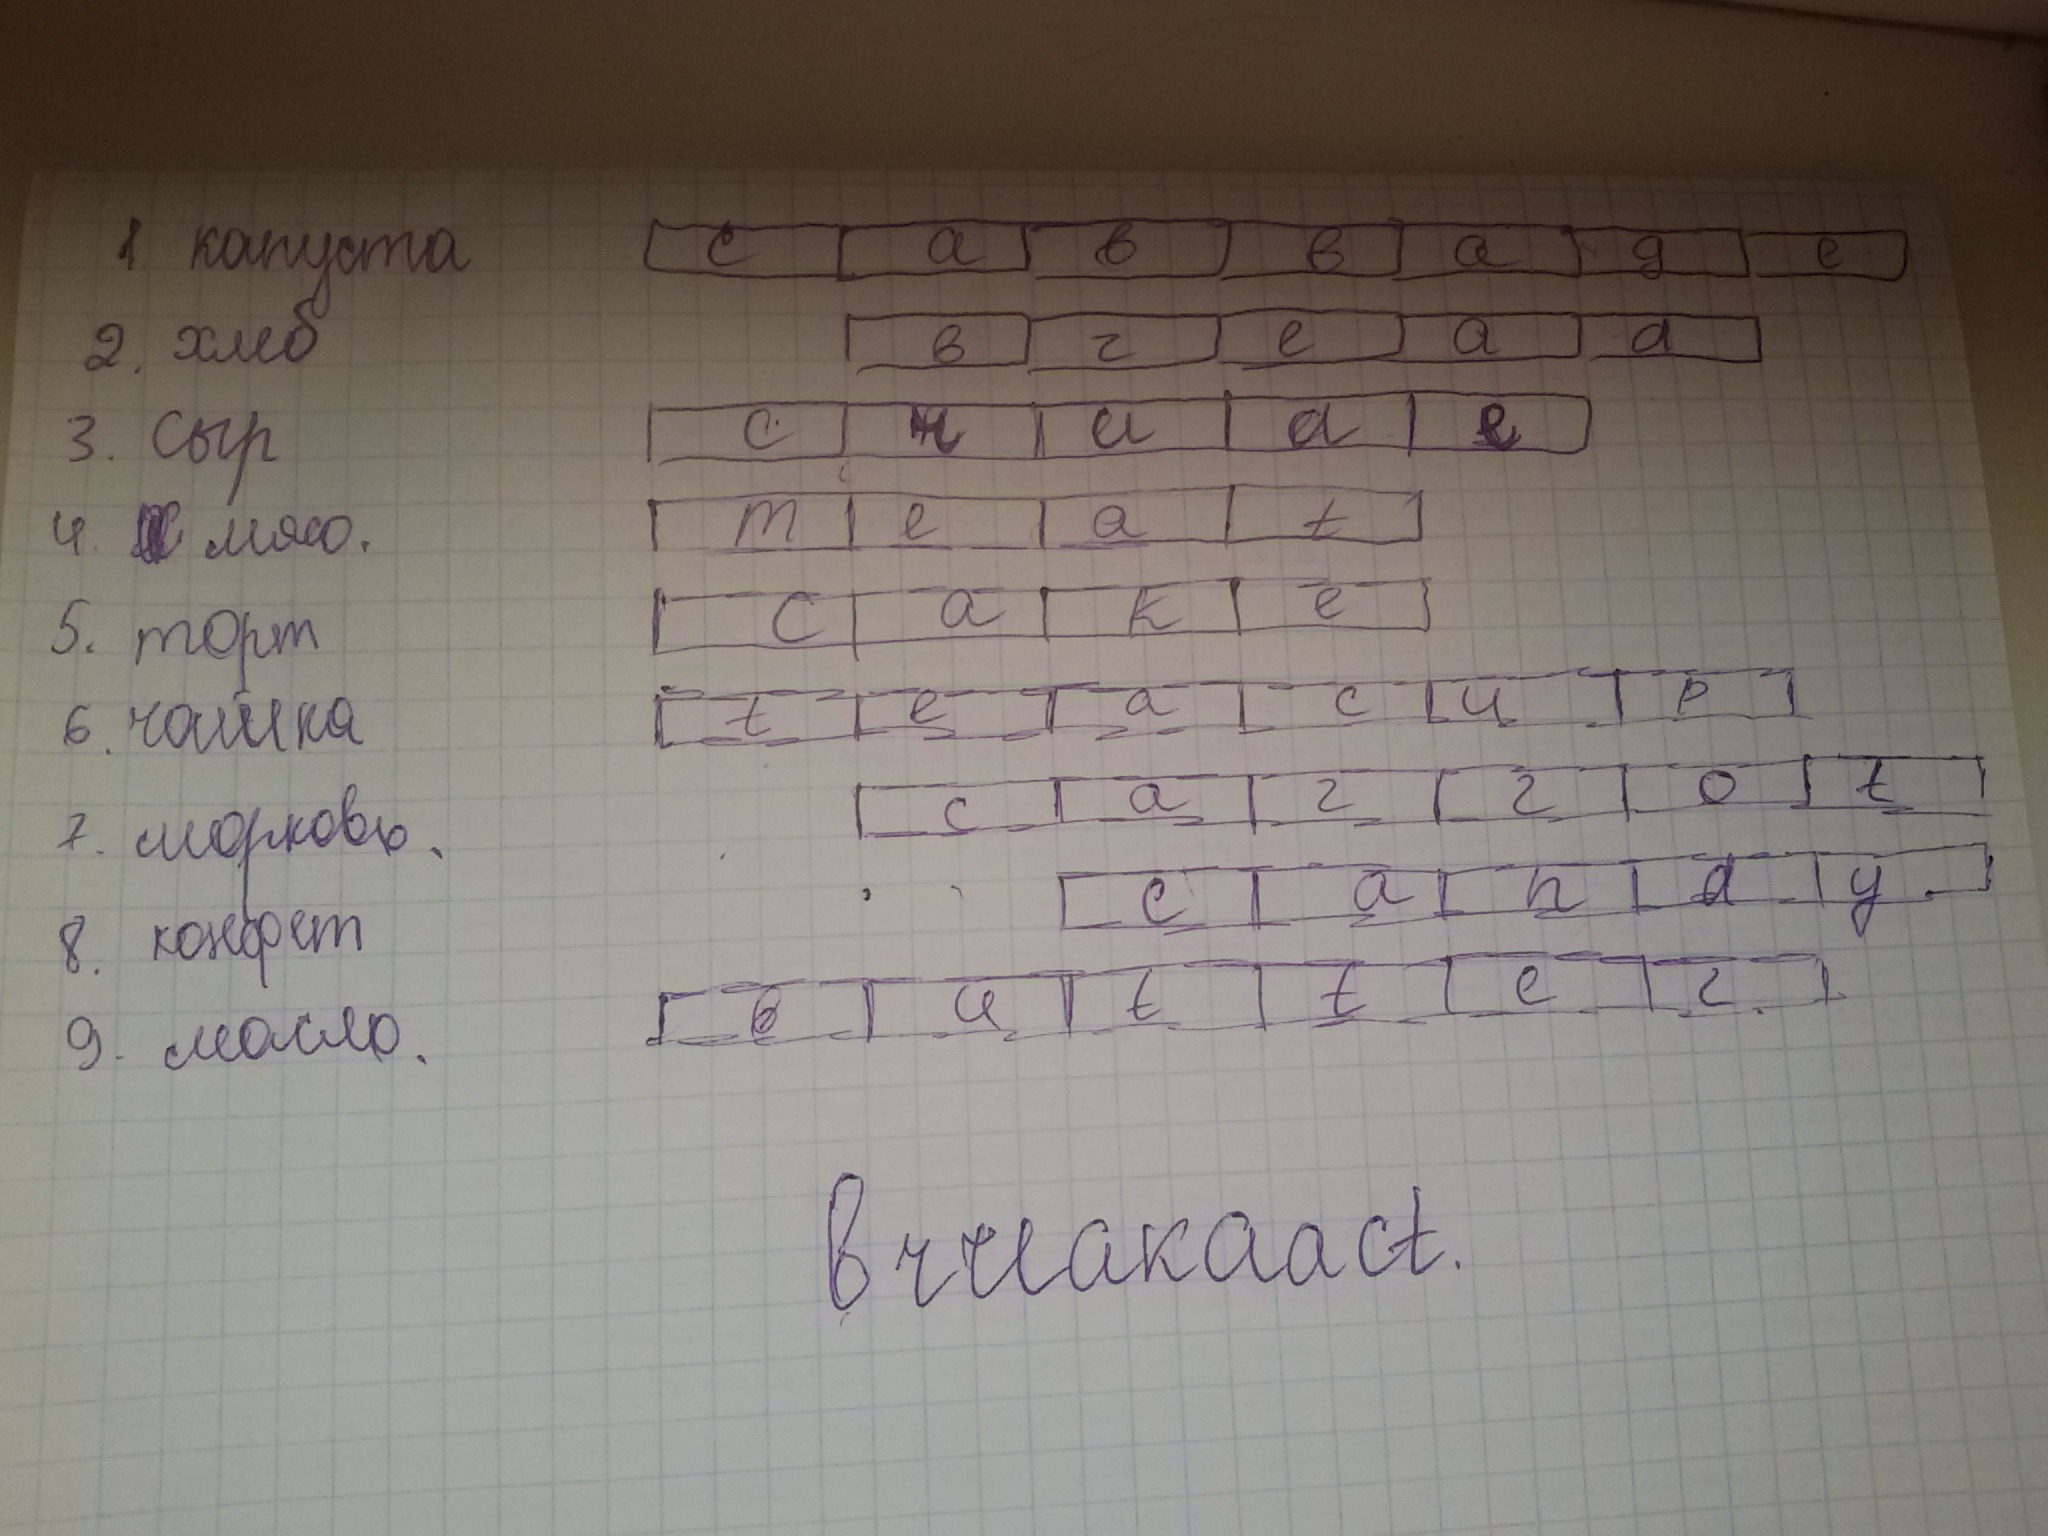 1. капуста c a b b a g e
2. хлеб b r e a d
3. сыр c h u d e
4. мясо. m e a t
5. торт c a k e
6. чашка t e a c u p
7. морковь. c a r r o t
8. конфет c a n d y
9. масло. b u t t e r